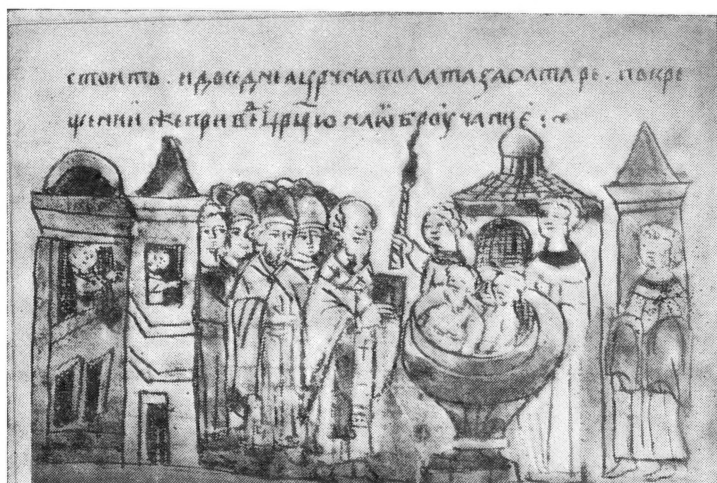 стоить . и до се дне а црчна полата за олтаре . по кре
щении же приведе цр҃цю на ѡброучание :~